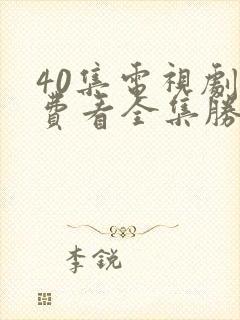 40集電視劇
費看全集勝
李銳